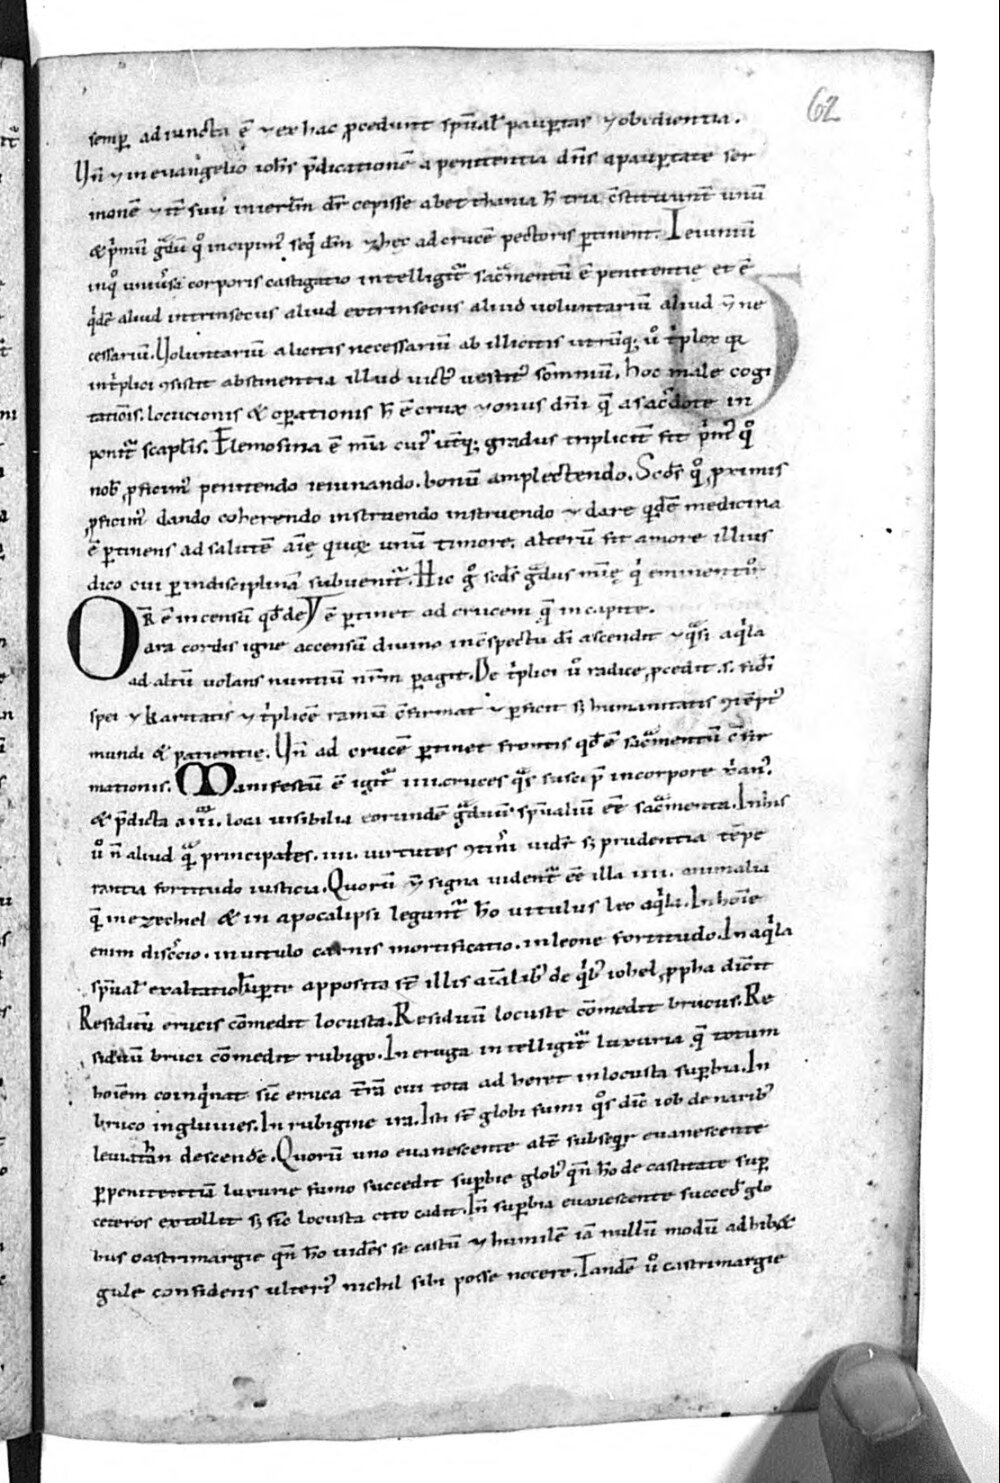 62
semp̄ adiuncta ē ⁊ ex hac ꝓcedunt sp̄ual' paup̄tas ⁊ obedientia.
Un̄ ⁊ in evangelio ioh̄is p̄dicationē a penitentia dn̄s a paup̄tate ser
monē ⁊ it̄ suū in ier̄lm dr̄ cepisse a bethania h̄ tria c̄stituunt unū
& p̄mū gͣdū qͦ incipim᷒ seq̄ dm̄ ⁊ hec ad crucē pectoris ꝑtinent. Ieiuniū
in qͦ univ̄sa corporis castigatio intelligit᷑ sacͣmentū ē penitentię et ē
qͥdē aliud intrinsecus aliud extrinsecus aliud voluntariū aliud v̄ ne
cessariū. Voluntariū a licitis necessariū ab illicitis utrūq; v̊ tͥplex qꝛ
in tͥplici ꝯsistit abstinentia illud vict᷒ vestit᷒ somniū. hoc male cogi
tatiōis. locucionis & oꝑationis h̄ ē crux ⁊ onus dn̄i q̄ a sac̄dote in
ponit᷑ scapl̄is. Elemosina ē mīa cui᷒ utͥq; gradus triplicit̄ fit p̄m᷒ qͦ
nob̄ ꝓficim᷒ penitendo ieiunando. bonū amplectendo. Scd̄s qͦ ꝓximis
ꝓficim᷒ dando coherendo instruendo instruendo ⁊ dare qͥdē medicina
ē ꝑtinens ad salutē aīę quię unū timore. alterū fit amore illius
dico cui ꝑ indisciplinā subvenit᷑. Hic gͦ scd̄s gͣdus mīę qͥ eminent
OR̄ ē incensū qd̄ de ē ꝑtinet ad crucem q̄ in capite.
ara cordis igne accensū divino in c̄spectu dī ascendit ⁊ qͣsi aqͥla
ad altū volans nuntiū nr̄m ꝑagit. De tͥplici v̊ radice ꝓcedit .s. fidei
spei ⁊ karitatis ⁊ tͥplicē ramū c̄firmat ⁊ ꝑficit s; humanitatis ꝯtēpt᷒
mundi & patientię. Un̄ ad crucē ꝑtinet frontis qd̄ ē sacͣmentū c̄fir
mationis. Manifestū ē igit᷑ iiii. cruces qͣs suscip̄ in corpore xͥan᷒.
& p̄dicta a iiii. loca visibilia eorundē gͣduū sp̄ualiū eē sacͣmenta. In his
v̊ n̄ aliud qͣ principales .iiii. virtutes ꝯtin̄i vidr̄ s; prudentia tēpe
rantia fortitudo iusticia. Quorū v̄ signa vident᷑ eē illa iiii. animalia
q̄ in ezechiel & in apocalipsi legunt᷑ hō vitulus leo aqͥla. In hoīe
enim disc̄cio. in vitulo carnis mortificatio. in leone fortitudo. In aqͥla
sp̄ual' exaltatio. apposita st̄ illis aīalib᷒ de qͥb᷒ iohel ꝓpha dicit
Residuū erucis comedit locusta. Residuū locuste comedit brucus. Re
siduū bruci comedit rubigo. In eruga intelligit᷑ luxuria q̄ totum
hoīem coinqͥnat sic̄ eruca t̄ra cui tota adheret in locusta suꝑbia. In
bruco ingluvies. In rubigine ira. Isti st̄ globi fumi qͦs dic̄ iob de narib᷒
leviathan descende. Quorū uno evanescente alt̄ subseqr̄ evanescente
ꝑ penitentiā luxurie fumo succedit suꝑbie glob᷒ qn̄ hō de castitate suꝑ
ceteros extollit s; sic̄ locusta cito cadit. In suꝑbia evanescente succed̄ glo
bus castrimargie qn̄ hō vidēs se castū ⁊ humilē iā nullū modū adhib&
gule confidens ulteri᷒ nichil sibi posse nocere. Tandē v̊ castrimargie